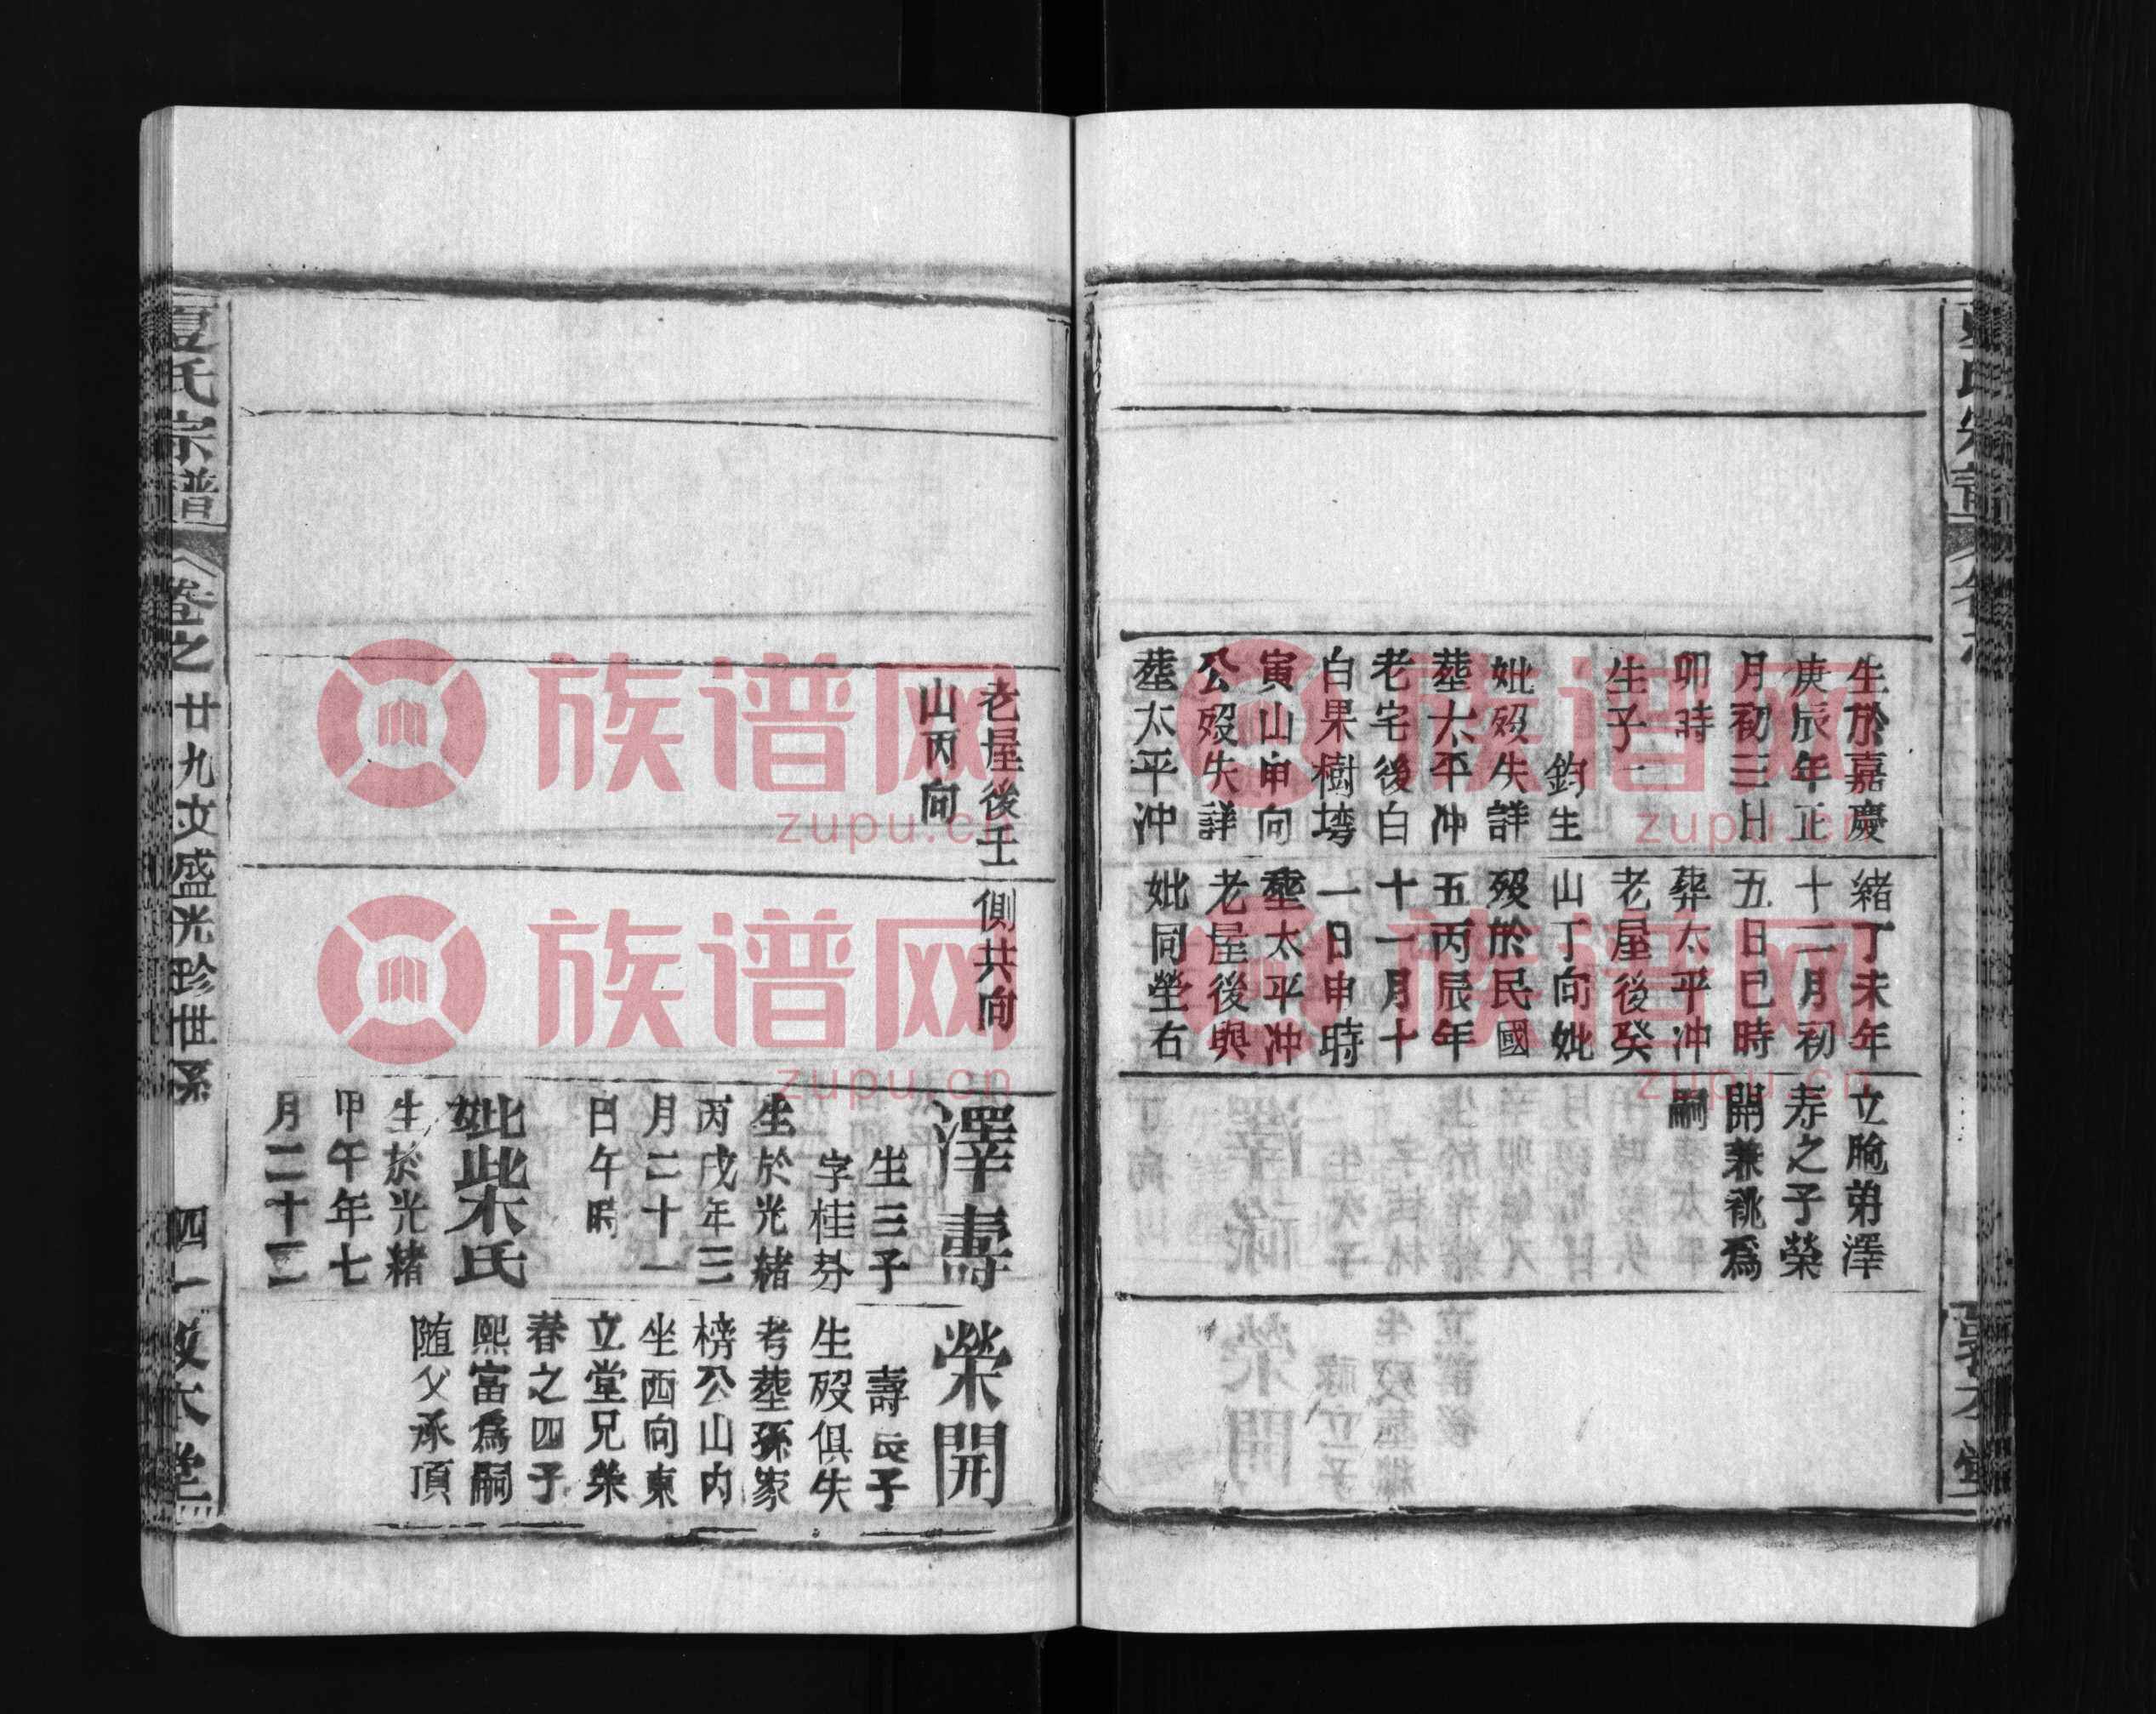 生於嘉慶
庚辰年正
月初三日
卯時
生子一
鈞生
妣歿失詳
葬太平冲
老宅後白
白果樹塆
寅山申向
公歿失詳
葬太平冲
緒丁未年
十二月初
五日巳時
葬太平冲
老屋後癸
山丁向妣
歿於民國
五丙辰年
十一月十
一日申時
葬太平冲
老屋後與
妣同塋右
立胞弟澤
寿之子榮
開兼祧爲
嗣
老屋後壬
山丙向
側共向
澤壽
生三子
字桂芬
生於光緒
丙戌年三
月二十一
日午時
妣柴氏
生於光緒
甲午年七
月二十三
榮開
壽長子
生歿俱失
考葬孫家
榜公山内
坐西向東
立堂兄榮
春之四子
熙富爲嗣
随父承頂
夏氏宗譜
卷之廿九文盛光珍世系
四一
敦本堂
族谱网
zupu.cn
族谱网
zupu.cn
族谱网
zupu.cn
族谱网
zupu.cn